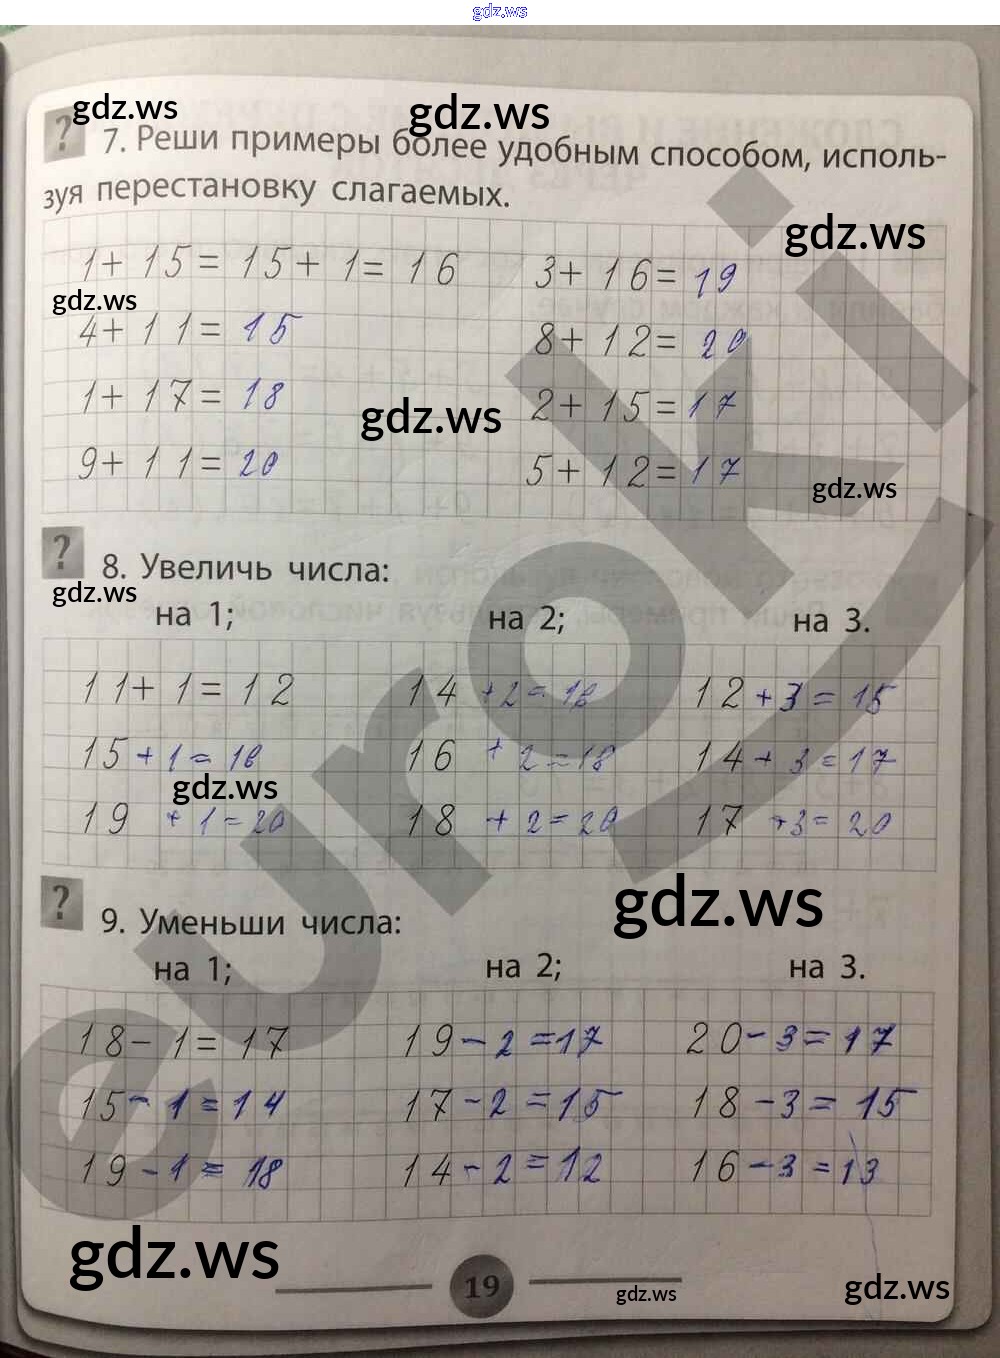 gdz.ws
gdz.ws
gdz.ws
? 7. Реши примеры более удобным способом, исполь-
зуя перестановку слагаемых.
gdz.ws
1+ 15= 15+ 1= 16 3+ 16= 19
gdz.ws
4+ 11= 15 8+ 12= 20
1+ 17= 18 2+ 15=17
gdz.ws
9+ 11= 20 5+ 12=17
gdz.ws
? 8. Увеличь числа:
gdz.ws
на 1; на 2; на 3.
11+ 1= 12 14 +2= 16 12 +3= 15
15 +1= 16 16 +2=18 14+3=17
gdz.ws
19 +1=20 18 +2=20 17 +3=20
? 9. Уменьши числа:
gdz.ws
на 1; на 2; на 3.
18- 1= 17 19-2=17 20-3=17
15-1=14 17-2=15 18-3=15
19-1=18 14-2=12 16-3=13
gdz.ws
19
gdz.ws
gdz.ws
euroki